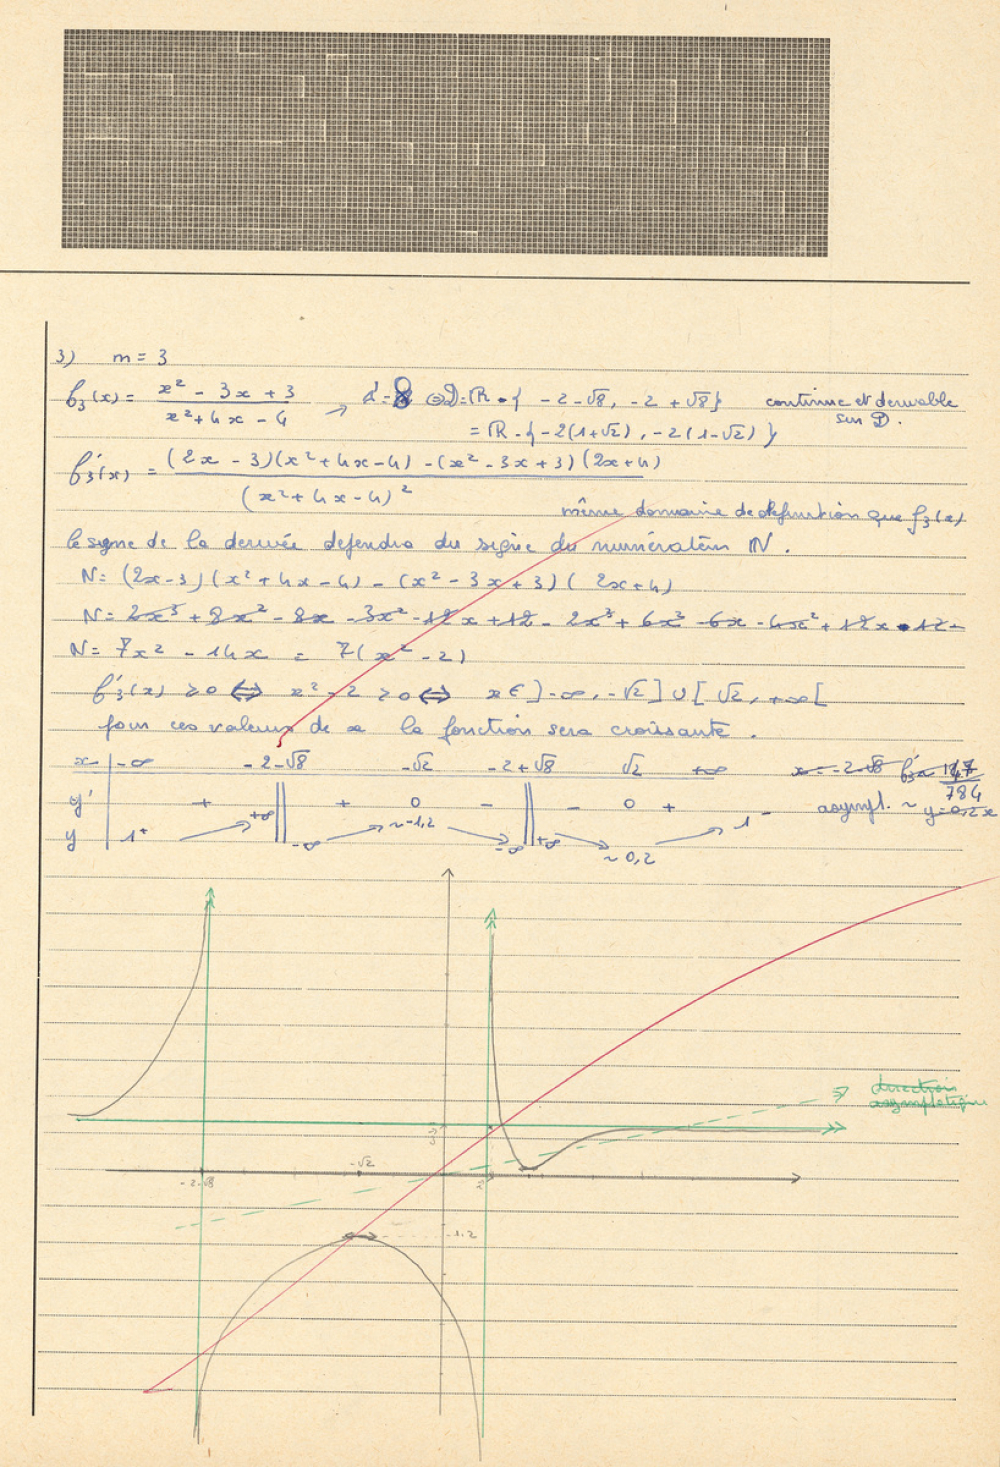 3) m = 3
f₃(x) = (x² - 3x + 3)/(x² + 4x - 4) → d' = 8 ⇔ D = ℝ - { -2-√8, -2+√8} continue et derivable sur D.
= ℝ - { -2(1+√2), -2(1-√2) }
f'₃(x) = ((2x - 3)(x² + 4x - 4) - (x² - 3x + 3)(2x+4))/(x² + 4x - 4)²
même domaine de definition que f₃(x)
le signe de la derivée dependra du signe du numérateur N.
N = (2x-3)(x² + 4x - 4) - (x² - 3x + 3)(2x+4)
N = 2x³ + 8x² - 8x - 3x² - 12x + 12 - 2x³ + 6x² - 6x - 4x² + 12x - 12
N = 7x² - 14x = 7(x² - 2)
f'₃(x) ≥ 0 ⇔ x² - 2 ≥ 0 ⇔ x ∈ ]-∞, -√2] ∪ [√2, +∞[
pour ces valeurs de x la fonction sera croissante.
x -∞ -2-√8 -√2 -2+√8 √2 +∞ x = -2-√8 147/784
y' + + 0 - - 0 + asympt. ~ y=0,2x
y 1⁺ +∞ -∞ ~-1,2 -∞ +∞ ~0,2 1⁻
direction
asymptotique
-√2
-2-√8
-1,2